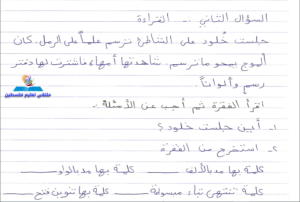 السؤال الثاني :- القراءة
جلست خلود على الشاطئ ترسم علماً على الرمل، كان
الموج يمحو ما ترسم، شاهدتها أمها فاشترت لها دفتر
رسم وألواناً.
اقرأ الفقرة ثم أجب عن الأسئلة :-
١- أين جلست خلود ؟
٢- استخرج من الفقرة
كلمة بها مد بالألف ______ كلمة بها مد بالواو ______
كلمة تنتهي بتاء مبسوطة ______ كلمة بها تنوين فتح ______
ملتقى تعليم فلسطين